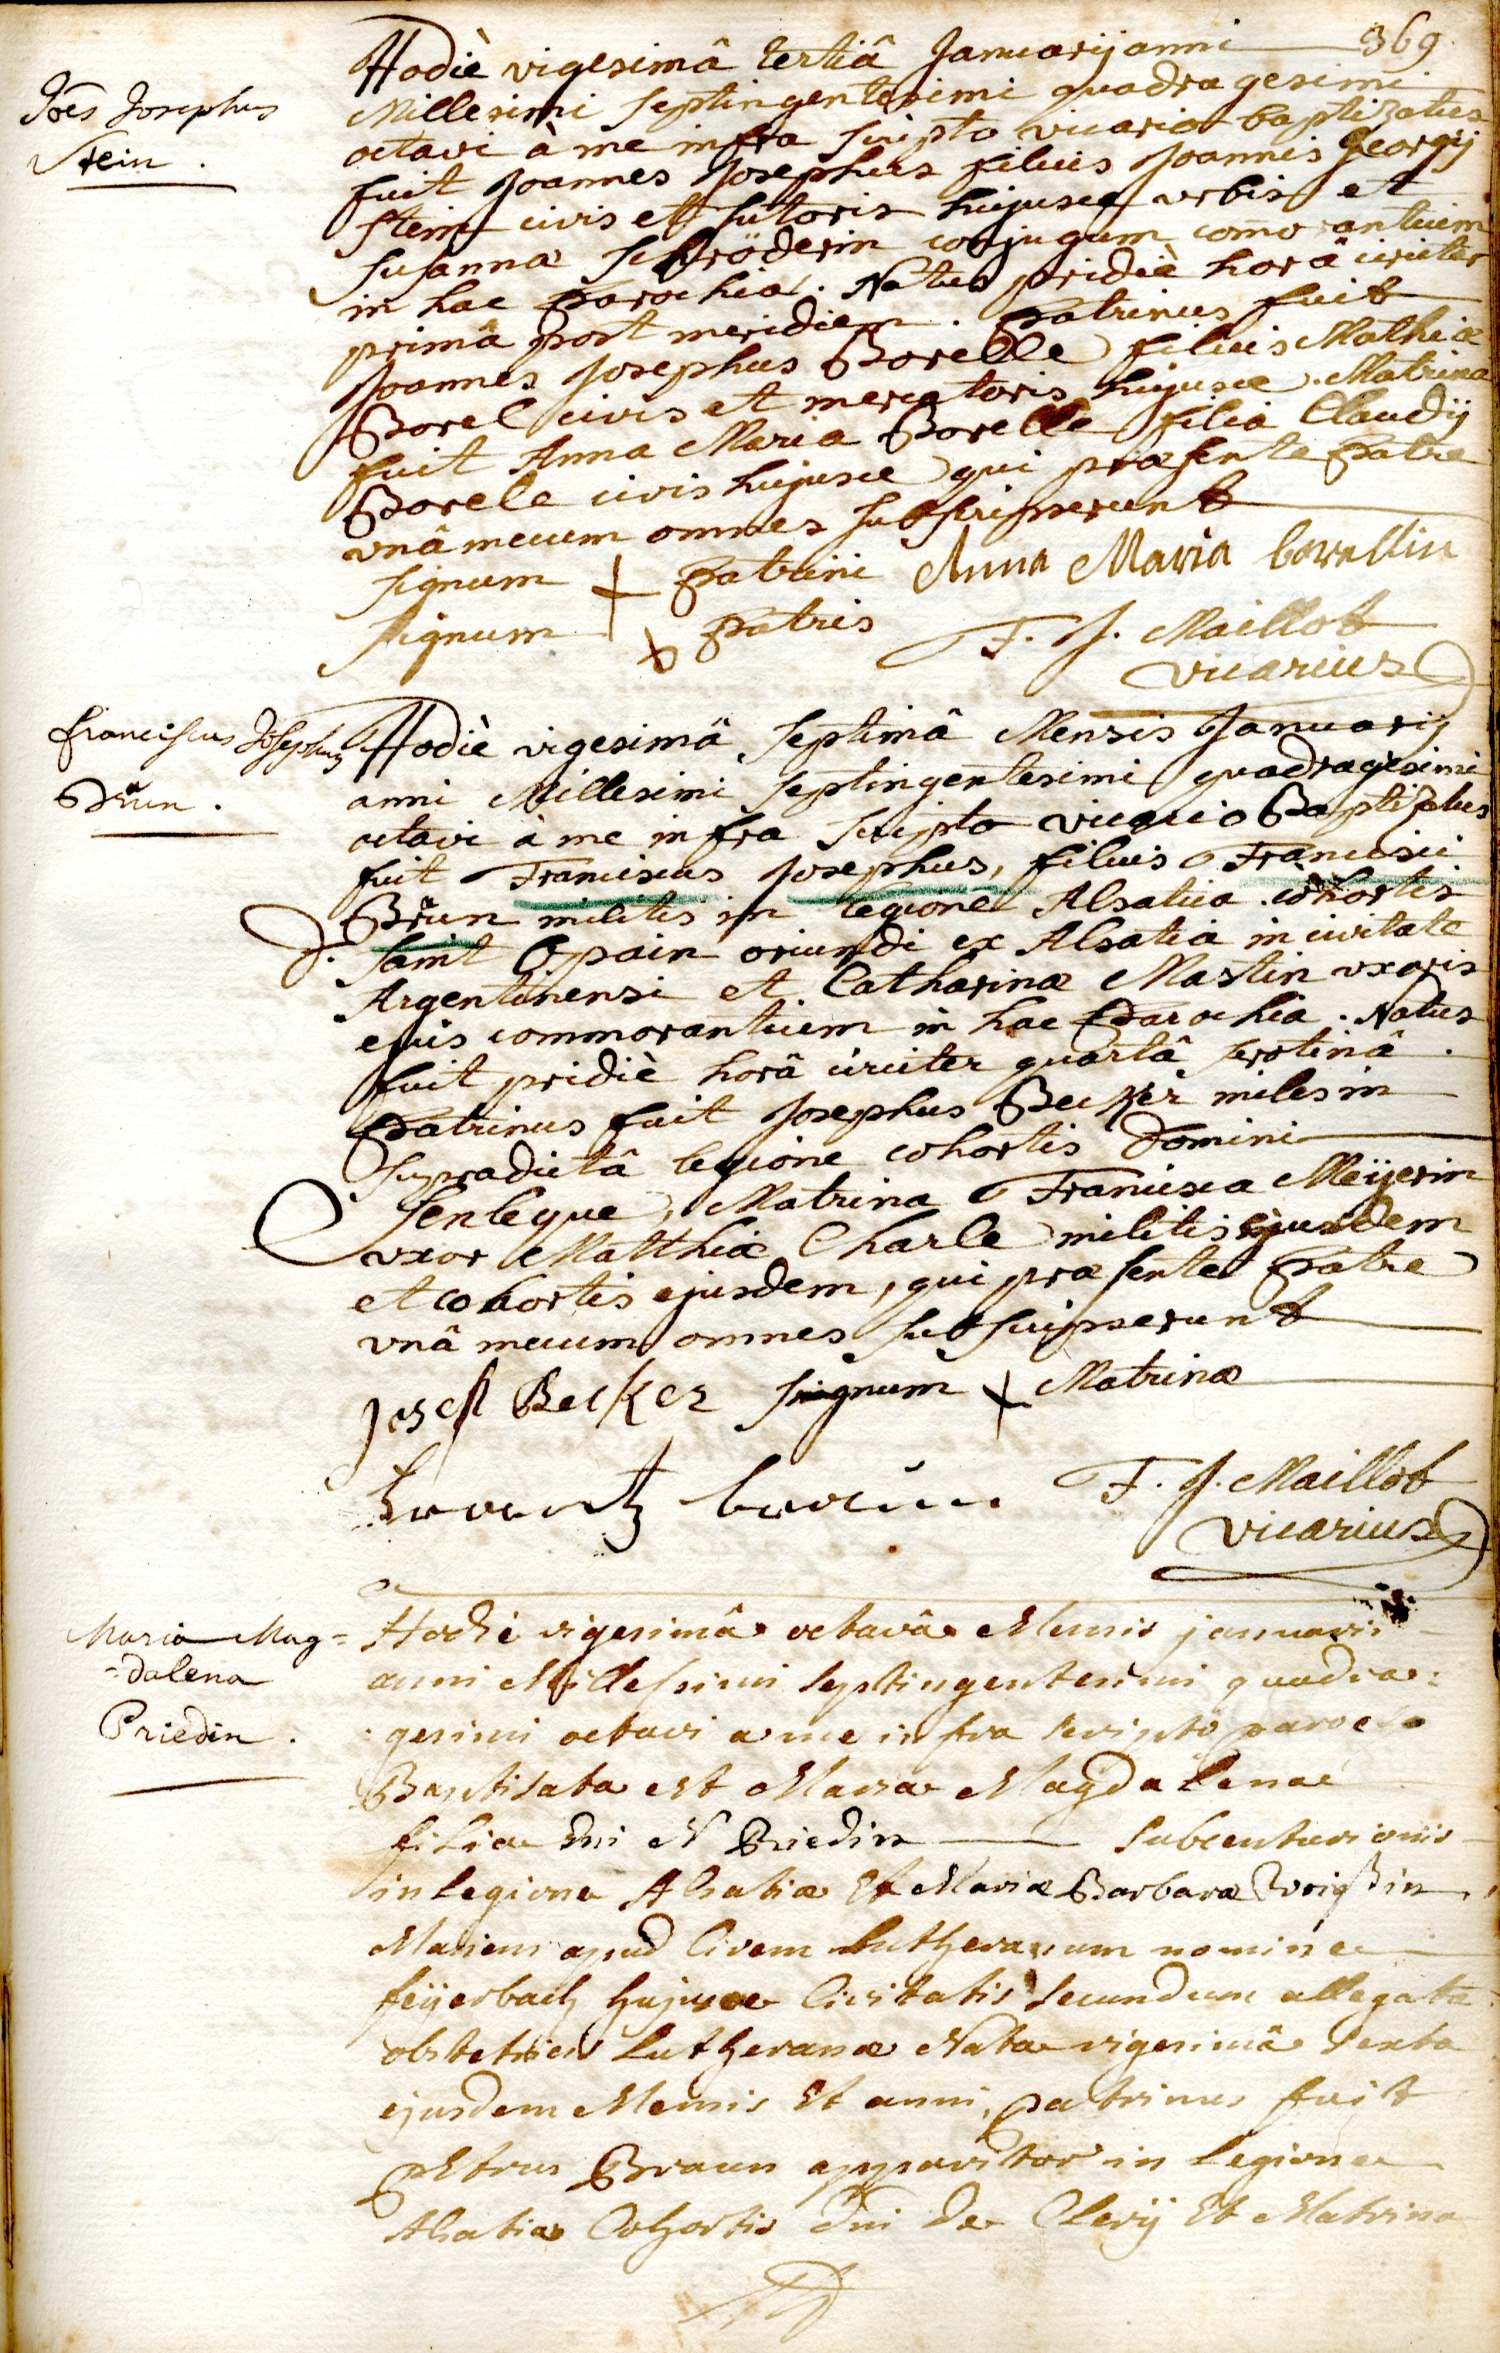 369
Joẽs Josephus
Stein.
Hodiè vigesimâ tertiâ Januarij anni
Millesimi septingentesimi quadragesimi
octavi à me infra scripto vicario baptizatus
fuit Joannes Josephus filius Joannis Georgij
Stein civis et sutoris hujusce urbis et
Susanna Schröderin conjugum com̃orantium
in hac Parochia. Natus pridiè horâ circiter
primâ post meridiem. Patrinus fuit
Joannes Josephus Borelle filius Mathiæ
Borel civis et mercatoris hujusce. Matrina
fuit Anna Maria Borelle filia Claudij
Borele civis hujusce qui præsente Patre
vnâ mecum omnes subscripserunt
signum + Patrini Anna Maria borellin
signum + Patris F. J. Maillot
vicarius
Franciscus Josephus
Brŭn.
Hodiè vigesimâ septimâ Mensis Januarij
anni Millesimi septingentesimi quadragesimi
octavi à me infra scripto vicario Baptizatus
fuit Franciscus Josephus, filius Francisci
Brŭn militis in legione Alsatica cohortis
D. Saint Opain oriundi ex Alsatia in civitate
Argentinensi et Catharinæ Mastin vxoris
ejus commorantium in hac Parochia. Natus
fuit pridiè horâ circiter quartâ serotinâ.
Patrinus fuit Josephus Becker miles in
supradictâ legione cohortis Domini
Senleque, Matrina Francisca Meÿerin
vxor Matthiæ Charle militis ejusdem
et cohortis ejusdem, qui præsente Patre
vnâ mecum omnes subscripserunt
Josef Becker signum + Matrinæ
Frantz braun F. J. Maillot
vicarius
Maria Mag=
=dalena
Priedin.
Hodiè vigesimâ octavâ Mensis januarii
anni Millesimi septingentesimi quadra:
gesimi octavi a me infra scripto parocho
Baptisata est Maria Magdalena
filia Dni N Briedin subcenturionis
in legione Alsatiæ Et Mariæ Barbaræ
Manens apud Civem Lutheranum nomine
feÿerbach hujusce Civitatis secundum allegata
obstetricis Lutheranæ Nata vigesimâ sexta
ejusdem Mensis Et anni, patrinus fuit
pEtrus Braun apparitor in legione
Alsatiæ Cohortis Dni De Clerÿ Et Matrina